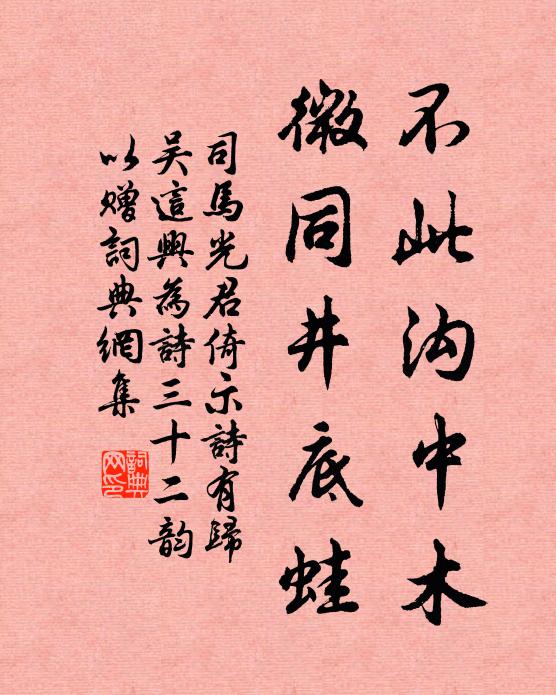 不此沟中木
微同井底蛙
司馬光君倚示詩有歸
吴這興為詩三十二韵
以贈詞典網集
詞典网印